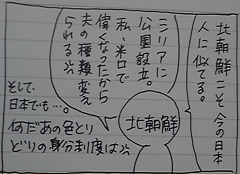 北朝鮮こそ今の日本
人に似てる。
シリアに
公園設立。
私、米口で
偉くなったから
夫の種類変え
られる!!
北朝鮮
そして、
日本でも…。
何だあの色とり
どりの身分制度は!!